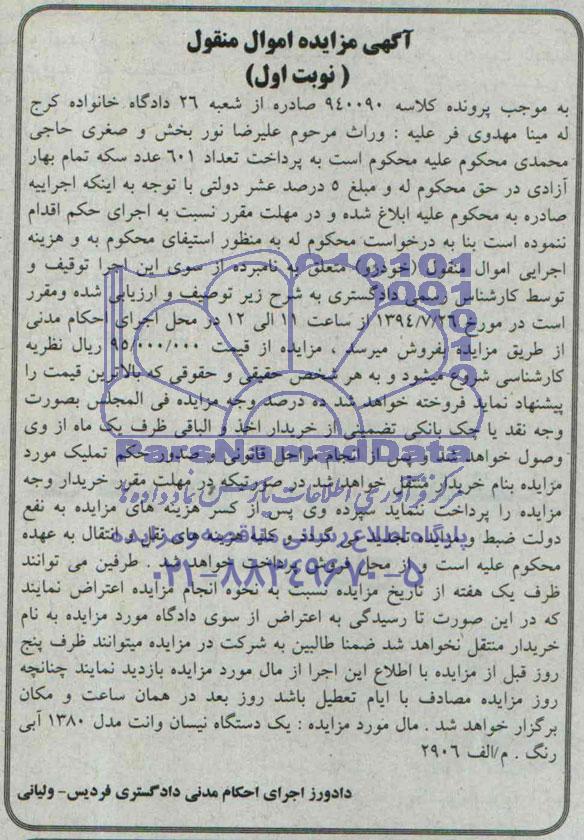 آگهی مزایده اموال منقول
( نوبت اول)
به موجب پرونده کلاسه ۹۴۰۰۹۰ صادره از شعبه ۲۶ دادگاه خانواده کرج
له مینا مهدوی فر علیه : وراث مرحوم علیرضا نور بخش و صغری حاجی
محمدی محکوم علیه محکوم است به پرداخت تعداد ۶۰۱ عدد سکه تمام بهار
آزادی در حق محکوم له و مبلغ ۵ درصد عشر دولتی با توجه به اینکه اجراییه
صادره به محکوم علیه ابلاغ شده و در مهلت مقرر نسبت به اجرای حکم اقدام
ننموده است بنا به درخواست محکوم له به منظور استیفای محکوم به و هزینه
اجرایی اموال منقول (خودرو) متعلق به نامبرده از سوی این اجرا توقیف و
توسط کارشناس رسمی دادگستری به شرح زیر توصیف و ارزیابی شده ومقرر
است در مورخ ۱۳۹۴/۷/۲۶ از ساعت ۱۱ الی ۱۲ در محل اجرای احکام مدنی
از طریق مزایده بفروش میرسد ، مزایده از قیمت ۹۵/۰۰۰/۰۰۰ ریال نظریه
کارشناسی شروع میشود و به هر شخص حقیقی و حقوقی که بالاترین قیمت را
پیشنهاد نماید فروخته خواهد شد ده درصد وجه مزایده فی المجلس بصورت
وجه نقد یا چک بانکی تضمینی از خریدار اخذ و الباقی ظرف یک ماه از وی
وصول خواهد شد و پس از انجام مراحل قانونی و صدور حکم تملیک مورد
مزایده بنام خریدار منتقل خواهد شد در صورتیکه در مهلت مقرر خریدار وجه
مزایده را پرداخت ننماید سپرده وی پس از کسر هزینه های مزایده به نفع
دولت ضبط و مزایده تجدید می گردد و کلیه هزینه های نقل و انتقال به عهده
محکوم علیه است و از محل فروش پرداخت خواهد شد . طرفین می توانند
ظرف یک هفته از تاریخ مزایده نسبت به نحوه انجام مزایده اعتراض نمایند
که در این صورت تا رسیدگی به اعتراض از سوی دادگاه مورد مزایده به نام
خریدار منتقل نخواهد شد ضمنا طالبین به شرکت در مزایده میتوانند ظرف پنج
روز قبل از مزایده با اطلاع این اجرا از مال مورد مزایده بازدید نمایند چنانچه
روز مزایده مصادف با ایام تعطیل باشد روز بعد در همان ساعت و مکان
برگزار خواهد شد . مال مورد مزایده : یک دستگاه نیسان وانت مدل ۱۳۸۰ آبی
رنگ . م/الف ۲۹۰۶
دادورز اجرای احکام مدنی دادگستری فردیس- ولیانی
ParsNamadData
مرکز فرآوری اطلاعات پارس نماد داده ها
پایگاه اطلاع رسانی مناقصه و مزایده
۰۲۱-۸۸۳۴۹۶۷۰-۵